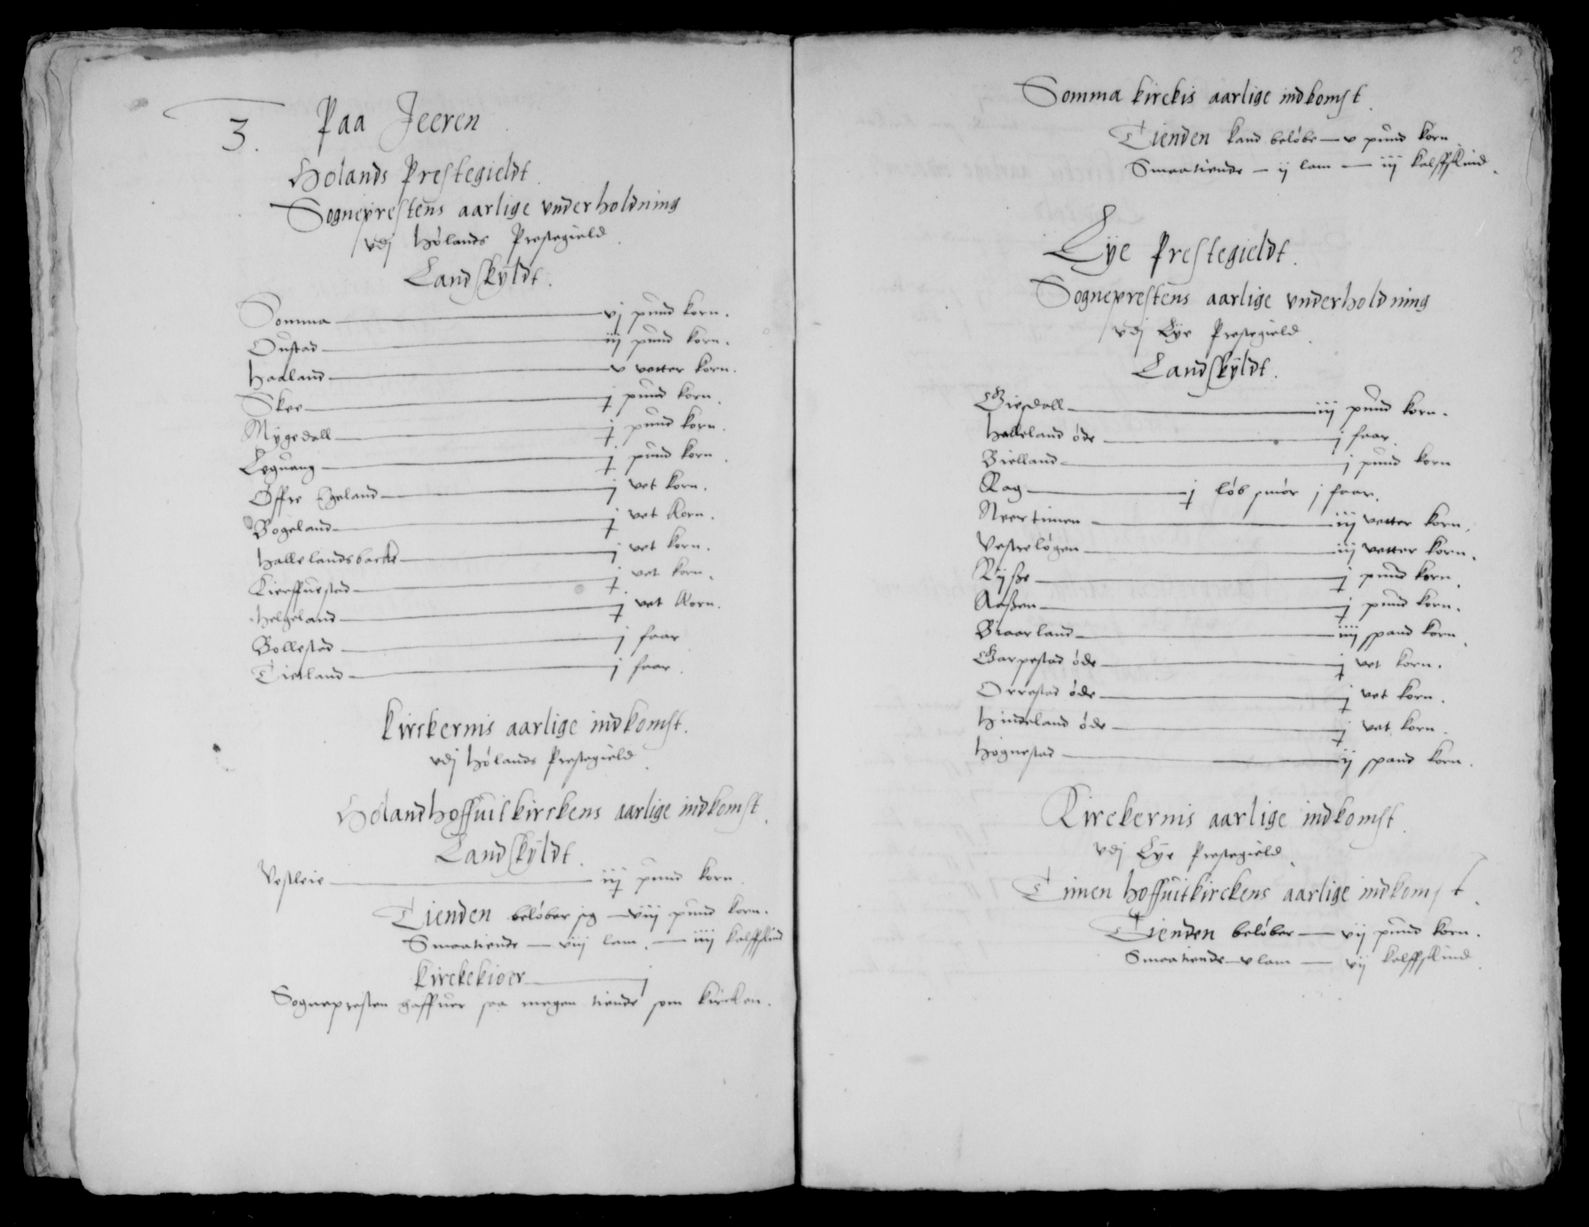 3. Paa Jeeren
Hølands Prestegieldt.
Sogneprestens aarlige vnderholdning
vdj Hølands Prestegield.
Landskyldt.
Somma — vj pund korn.
Oustad — iij pund korn.
Haaland — v vetter korn.
Skee — j pund korn.
Mygedall — j pund korn.
Leguang — j pund korn.
Øffre Egeland — j vet korn.
Bogeland — j vet korn.
Hallelandsbacke — j vet korn.
Kierffuestad — j vet korn.
Helgeland — j vet korn.
Bollestad — j faar
Tierland — j faar.
Kirckernis aarlige indkomst.
vdj Hølands Prestegield.
Høland hoffuitkirckens aarlige indkomst.
Landskyldt.
Vestleie — iij pund korn.
Tienden beløber sig — viij pund korn.
Smaatiende — viij lam. — iiij kalffskind
Kirckekiøer — j
Sognepresten haffuer saa megen tiende som kircken.
Somma kirckis aarlige indkomst.
Tienden kand beløbe — v pund korn
Smaatiende — ij lam — iij kalffskind.
Lye Prestegieldt.
Sogneprestens aarlige vnderholdning
vdj Lye Prestegield.
Landskyldt.
Giesdall — iij pund korn.
Halleland øde — j faar.
Bielland — j pund korn
Rag — j løb smør j faar.
Neertimen — iij vetter korn.
Vestreløgen — iij vetter korn.
Rysße — j pund korn.
Aaßen — j pund korn.
Braarland — iiij spand korn.
Garpestad øde — j vet korn.
Orrestad øde — j vet korn.
Hindeland øde — j vet korn.
Høgnestad — ij spand korn.
Kirckernis aarlige indkomst.
vdj Lye Prestegield.
Timen hoffuitkirckens aarlige indkomst.
Tienden beløber — vij pund korn.
Smaatiende — v lam — vij kalffskind.